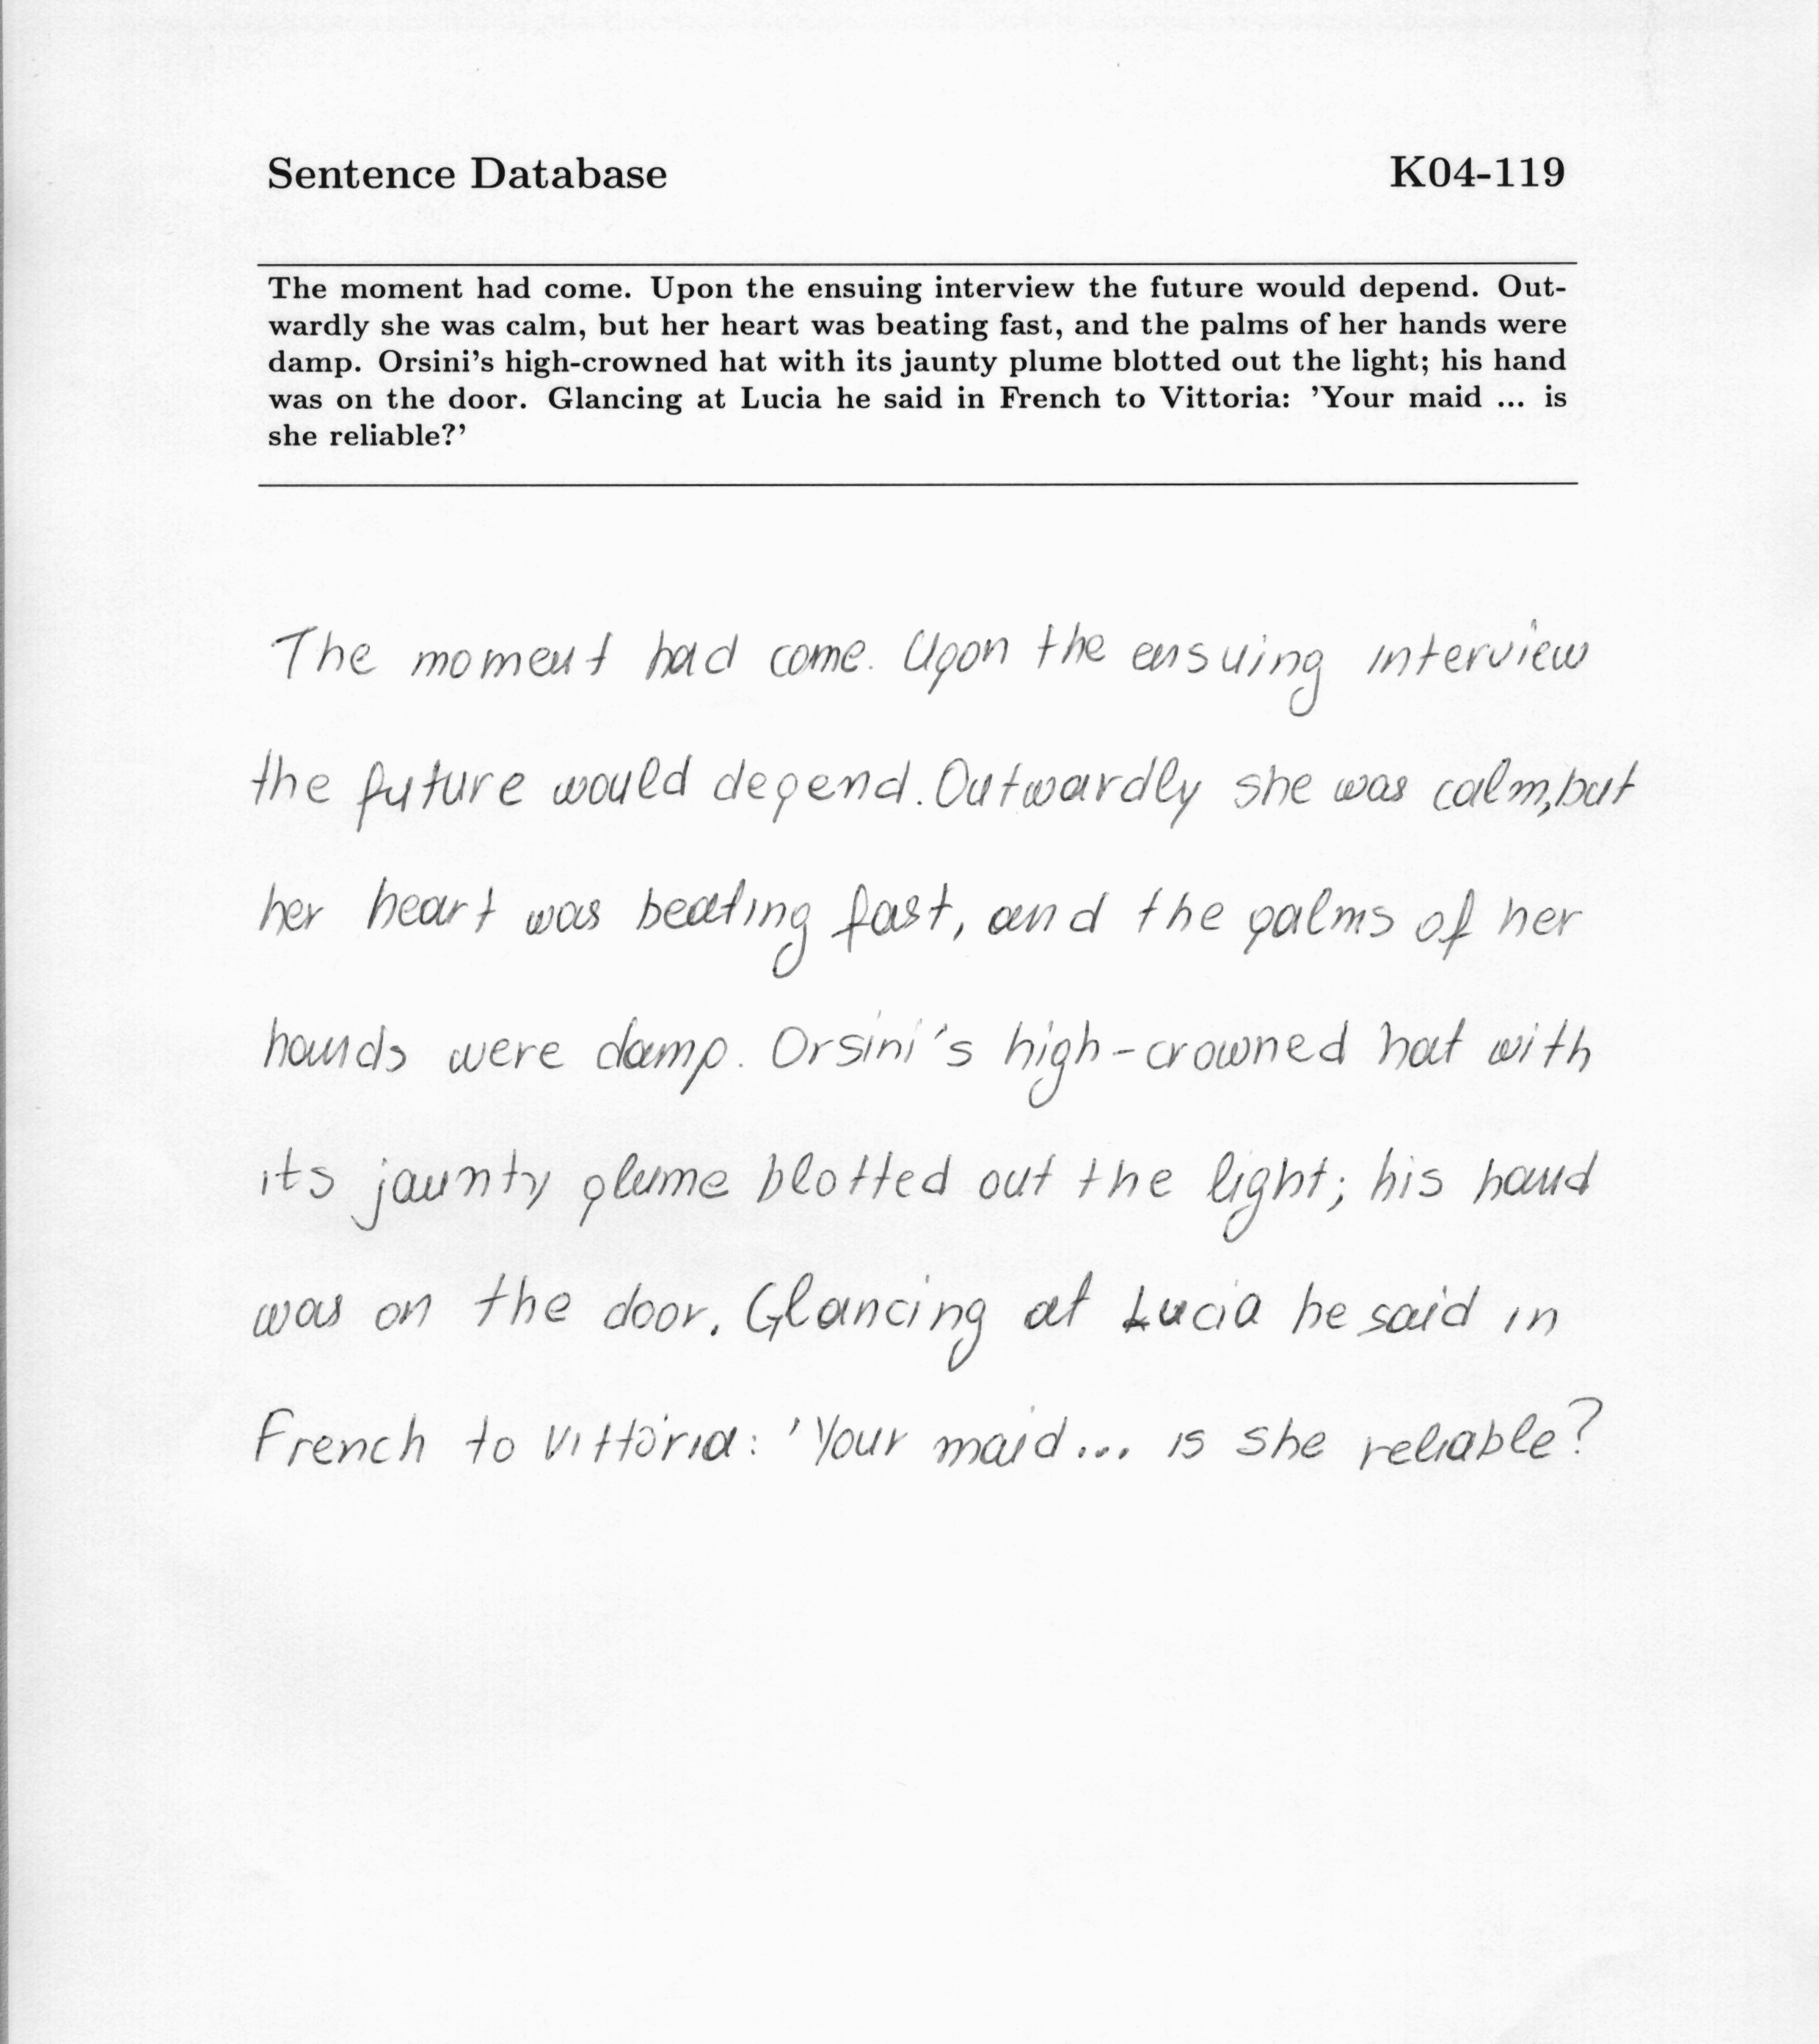 Sentence Database K04-119
The moment had come. Upon the ensuing interview the future would depend. Out-
wardly she was calm, but her heart was beating fast, and the palms of her hands were
damp. Orsini's high-crowned hat with its jaunty plume blotted out the light; his hand
was on the door. Glancing at Lucia he said in French to Vittoria: 'Your maid ... is
she reliable?'
The moment had come. Upon the ensuing interview
the future would depend. Outwardly she was calm, but
her heart was beating fast, and the palms of her
hands were damp. Orsini's high-crowned hat with
its jaunty plume blotted out the light; his hand
was on the door. Glancing at Lucia he said in
French to Vittoria: 'Your maid... is she reliable?